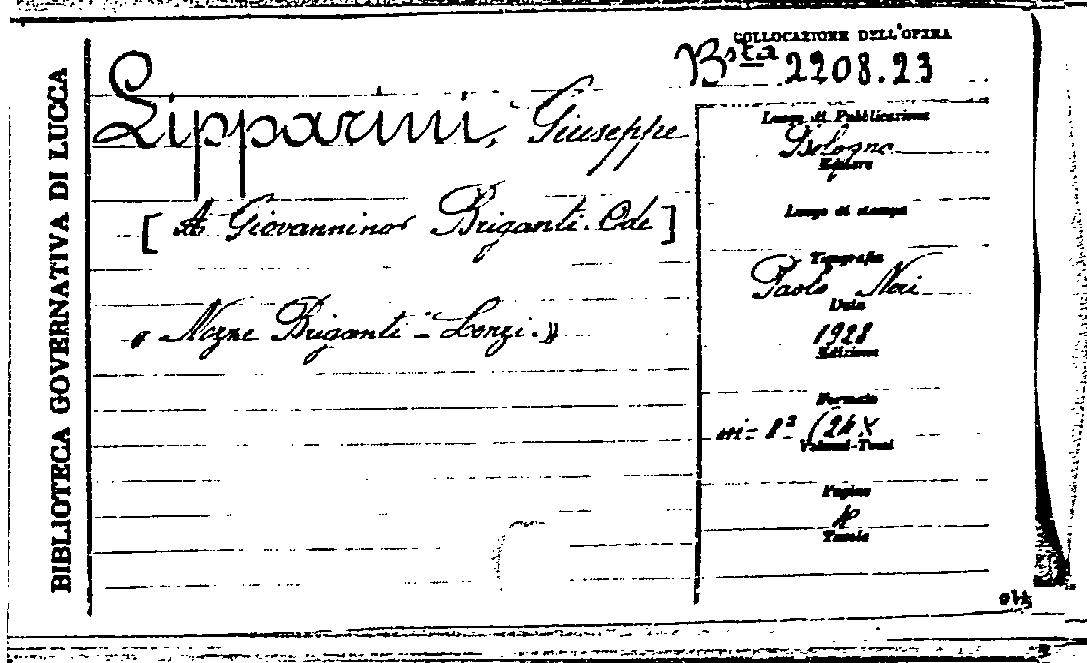 BIBLIOTECA GOVERNATIVA DI LUCCA
COLLOCAZIONE DELL'OPERA
Bsta 2208.23
Lipparini, Giuseppe
[A Giovannino Briganti. Ode]
« Nozze Briganti - Lonzi. »
Luogo di Pubblicazione
Bologna
Editore
Luogo di stampa
Tipografia
Paolo Neri
Data
1928
Edizione
Formato
in- 8º (24 X
Volumi-Tomi
Pagine
Tavole